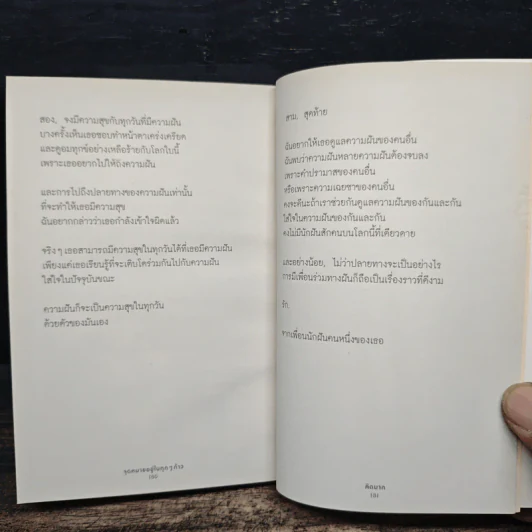 สอง, จงมีความสุขกับทุกวันที่มีความฝัน
บางครั้งเห็นเธอชอบทำหน้าตาเคร่งเครียด
และดูอมทุกข์อย่างเหลือร้ายกับโลกใบนี้
เพราะเธออยากไปให้ถึงความฝัน
และการไปถึงปลายทางของความฝันเท่านั้น
ที่จะทำให้เธอมีความสุข
ฉันอยากกล่าวว่าเธอกำลังเข้าใจผิดแล้ว
จริงๆ เธอสามารถมีความสุขในทุกวันได้ที่เธอมีความฝัน
เพียงแค่เธอเรียนรู้ที่จะเติบโตร่วมกันไปกับความฝัน
ใส่ใจในปัจจุบันขณะ
ความฝันก็จะเป็นความสุขในทุกวัน
ด้วยตัวของมันเอง
จุดหมายอยู่ในทุกๆ ก้าว
130
สาม, สุดท้าย
ฉันอยากให้เธอดูแลความฝันของคนอื่น
ฉันพบว่าความฝันหลายความฝันต้องจบลง
เพราะคำปรามาสของคนอื่น
หรือเพราะความเฉยชาของคนอื่น
คงจะดีนะถ้าเราช่วยกันดูแลความฝันของกันและกัน
ใส่ใจในความฝันของกันและกัน
คงไม่มีนักฝันสักคนบนโลกนี้ที่เดียวดาย
และอย่างน้อย, ไม่ว่าปลายทางจะเป็นอย่างไร
การมีเพื่อนร่วมทางฝันก็ถือเป็นเรื่องราวที่ดีงาม
รัก,
จากเพื่อนนักฝันคนหนึ่งของเธอ
คิดมาก
131